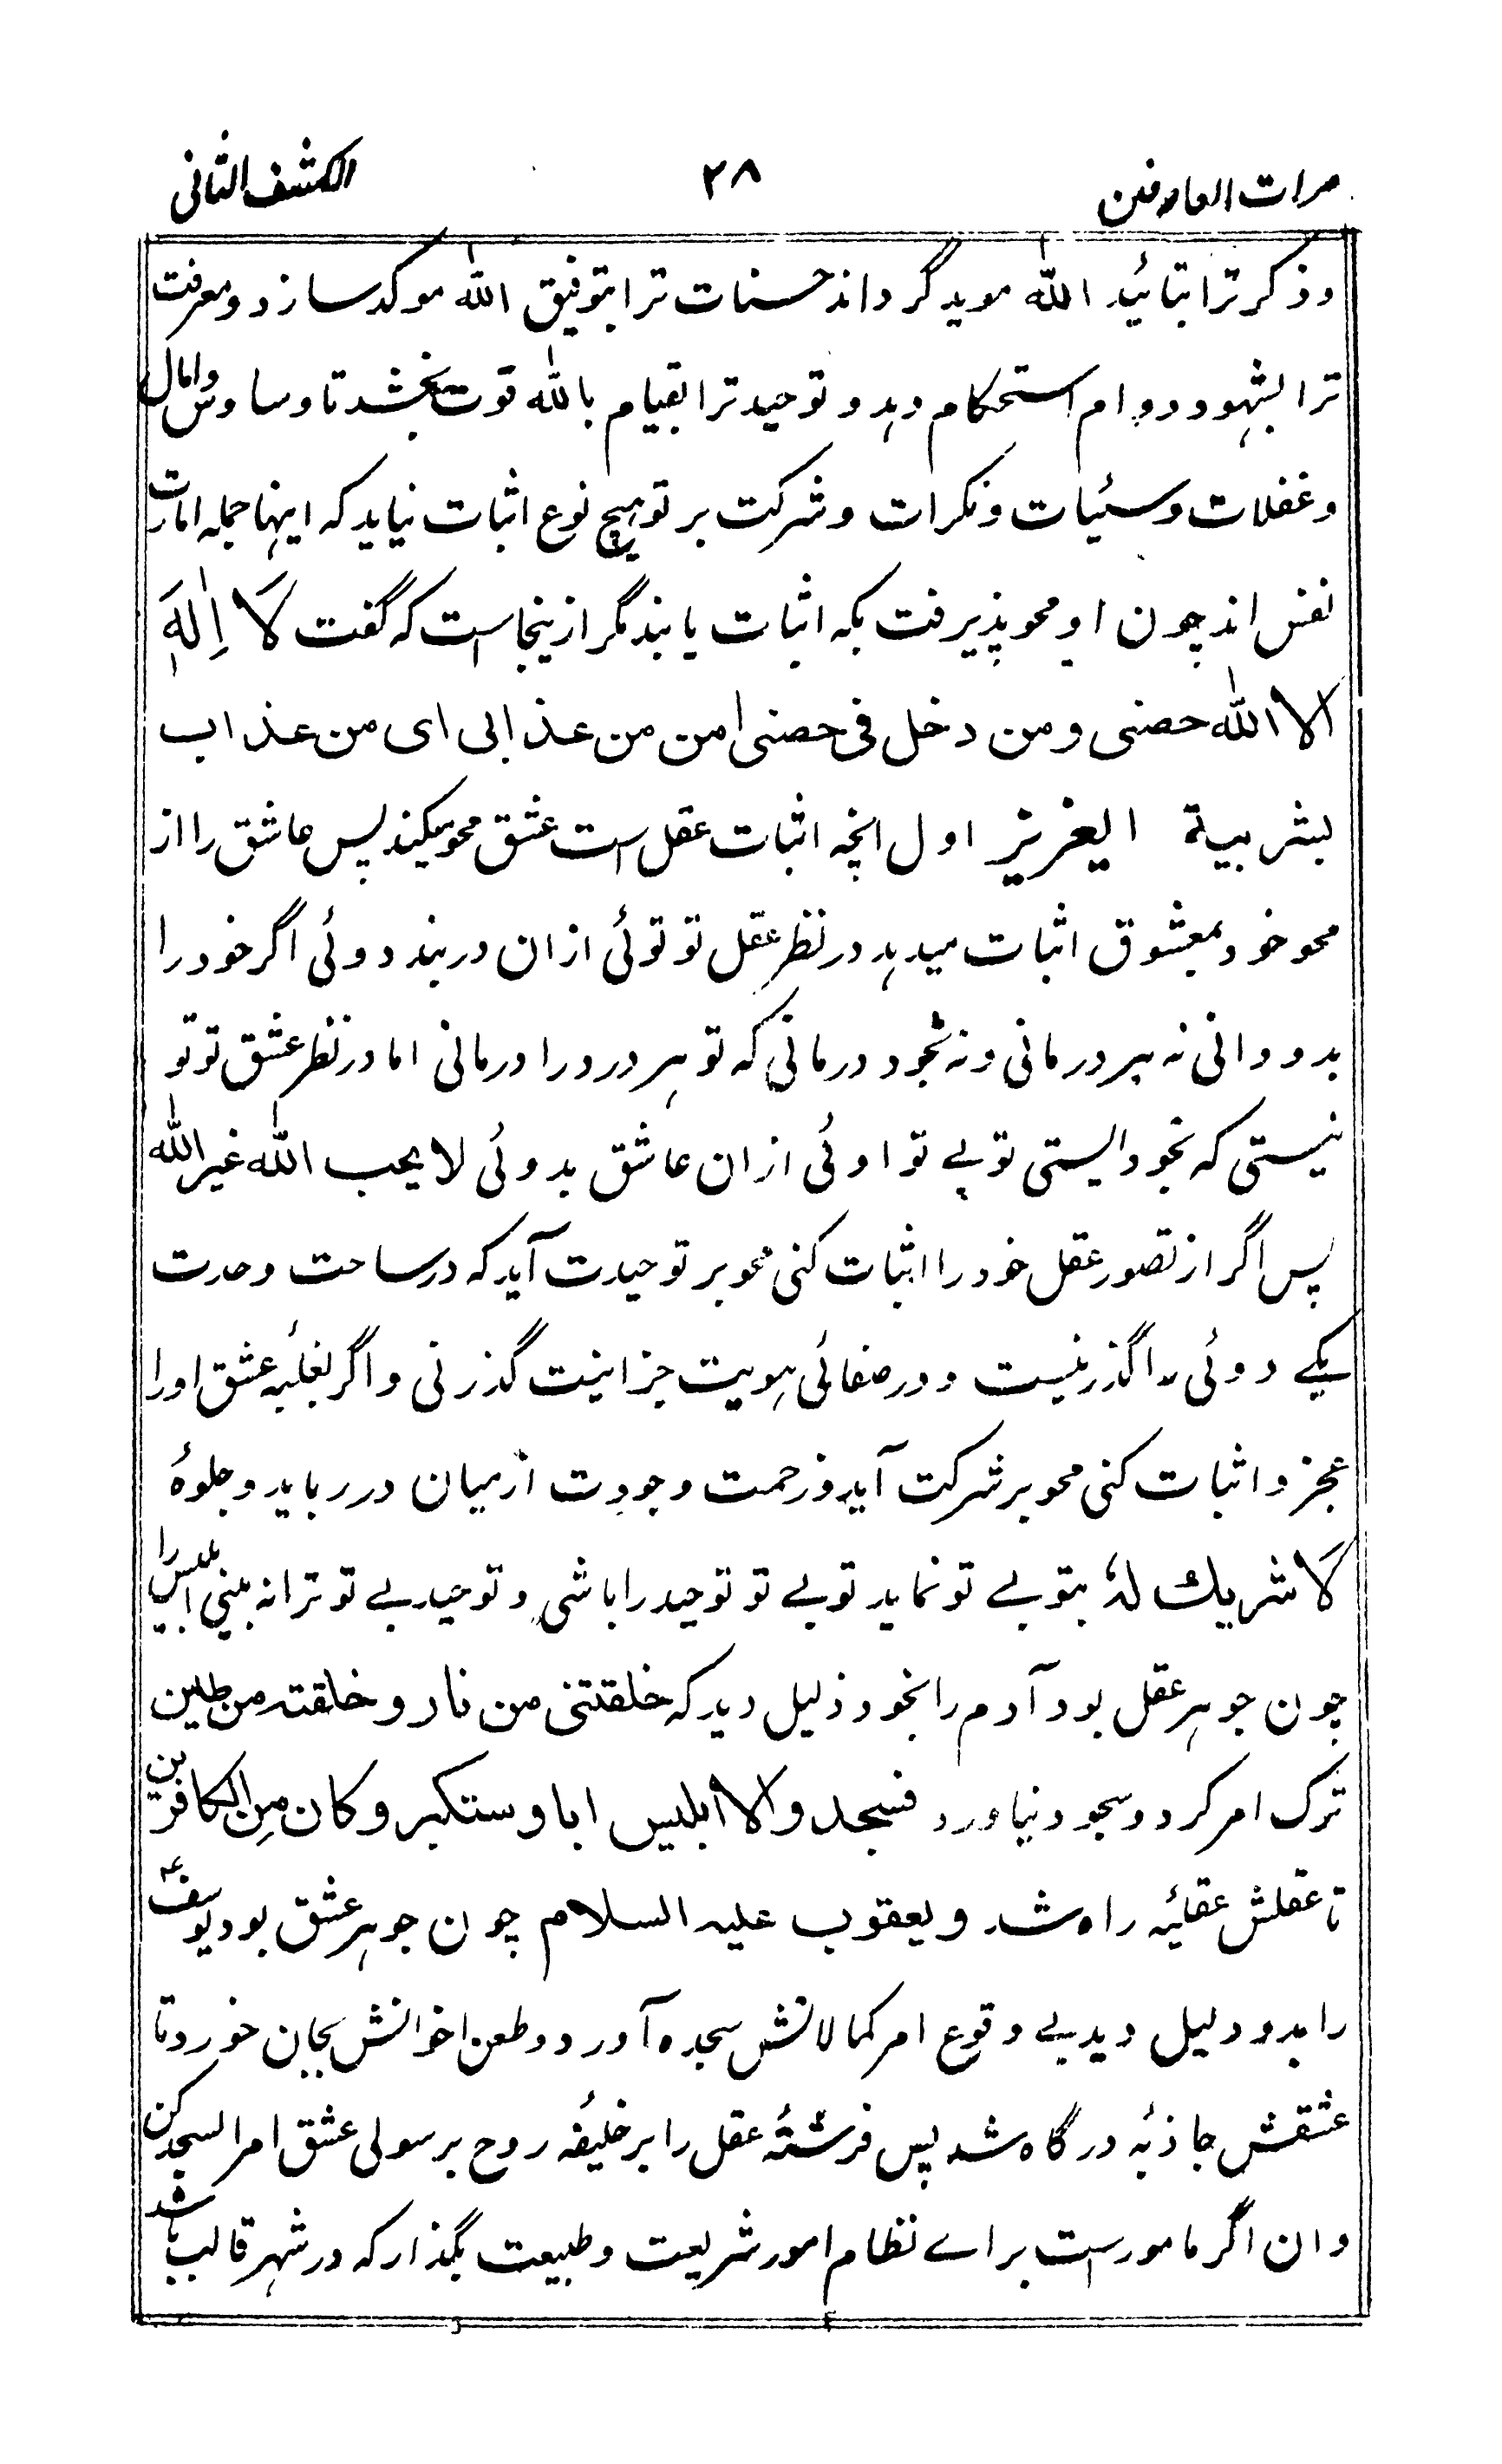 مرات العارفین ۲۸ الکشف الثانی
و ذکر ترا بتائید الله موید گرداند حسنات ترا بتوفیق الله موکد سازد و معرفت
ترا بشهود دوام استحکام دهد و توحید ترا بقیام بالله قوت بخشد تا وساوس و امال
و غفلات و سئیات و نکرات و شرکت بر تو هیچ نوع اثبات نیاید که اینها جمله امارت
نفس اند چون او محو پذیرفت بکه اثبات یابند مگر از ینجاست که گفت لا اِلٰهَ
الا الله حصنی و من دخل فی حصنی امن من عذابی ای من عذاب
بشریة ایعزیز اول انچه اثبات عقل است عشق محو میکند پس عاشق را از
محو خود بمعشوق اثبات میدهد در نظر عقل تو توئی ازان در بند دوئی اگر خود را
بدو دانی نه بهر درمانی و نه بخود درمانی که تو هر درد را درمانی اما در نظر عشق تو تو
نیستی که بخود ایستی تو بے تو اوئی ازان عاشق بدوئی لا یحب الله غیر الله
پس اگر از تصور عقل خود را اثبات کنی محو بر توحیدت آید که در ساحت وحدت
یکے دوئی را گذر نیست و در صفائی هویت جز اینیت گذر نی و اگر بغلبۀ عشق اورا
عجز و اثبات کنی محو بر شرکت آید و زحمت وجودت از میان در رباید و جلوۀ
لا شریك لهٗ بتو بے تو نماید تو بے تو توحید را باشی و توحید بے تو ترا نه بینی ابلیس را
چون جوهر عقل بود آدم را بخود ذلیل دید که خلقتنی من نار و خلقته من طین
ترک امر کرد و سجود نیاورد فسجدوا الا ابلیس ابا و ستکبر و کان مِن الکافرین
تا عقلش عقلئه راه شد و یعقوب علیه السلام چون جوهر عشق بود یوسف ؑ
را بدو دلیل دید بے وقوع امر کمالاتش سجده آورد و طعن اخوانش بجان خورد تا
عشقش جاذبۀ درگاه شد پس فرشتۀ عقل را بر خلیفه روح برسولی عشق امر اسجد کن
و ان اگر مامور است براے نظام امور شریعت و طبیعت بگذار که در شهر قالب باشد